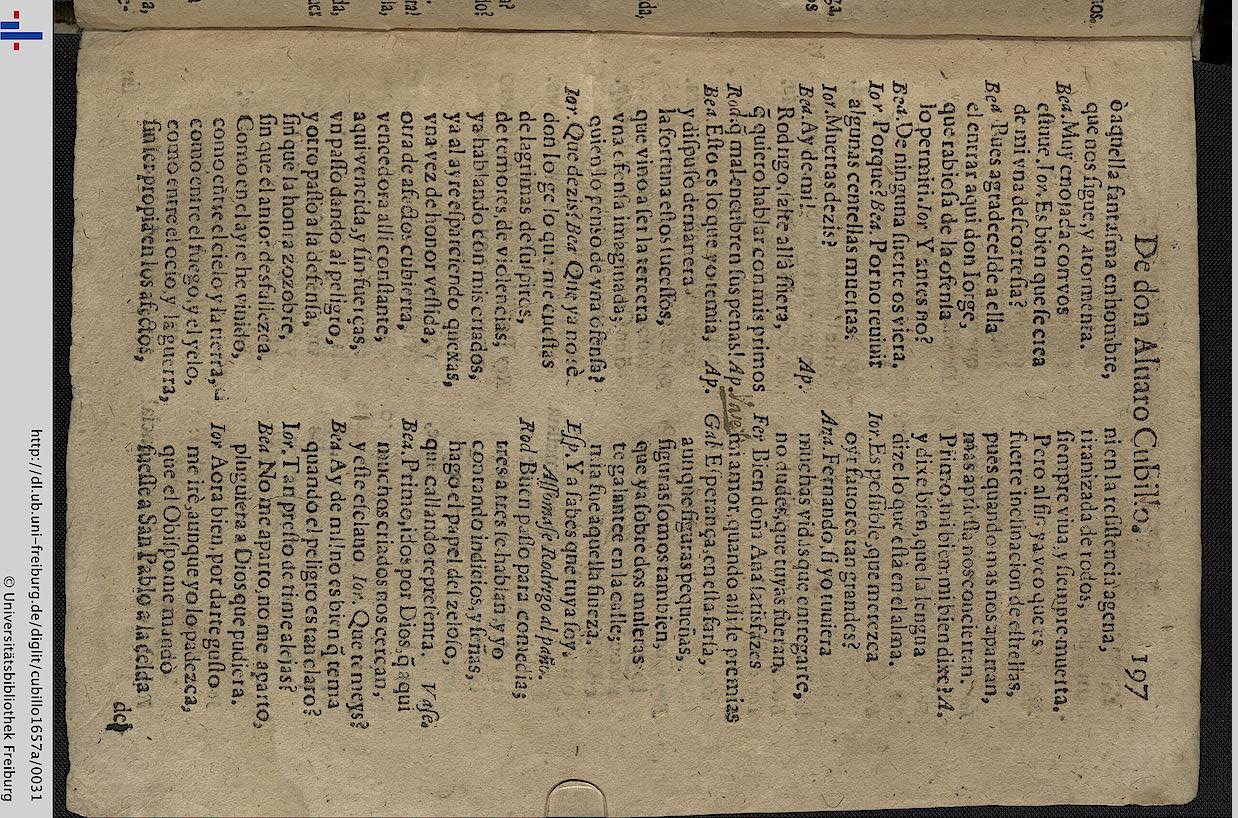 De don Aluaro Cubillo. 197
ò aquella fantasma en hombre,
que nos sigue, y atormenta.
Bea. Muy enojada con vos
estuue. Ior. Es bien que se cierta
de mi vna descortesia?
Bea Pues agradecelde a ella
el entrar aqui don Iorge,
que rabiosa de la ofensa
lo permiti. Ior Y antes no?
Bea. De ninguna suerte os viera.
Ior Porque? Bea Por no reuiuir
algunas centellas muertas.
Ior. Muertas dezis?
Bea. Ay de mi! Ap.
Rodrigo, salte allà fuera,
q̃ quiero hablar con mis primos
Rod. q̃ mal encubren sus penas! Ap. Vase
Bea Esto es lo que yo temia, Ap.
y dispuso de manera
la fortuna estos sucessos,
que vino a ser la tercera
vna ofensa imaginada;
quien lo penso de vna ofensa?
Ior. Que dezis? Bea Que ya no sè
don Iorge lo que me cuestas
de lagrimas, de suspiros,
de temores, de violencias,
ya hablando con mis criados,
ya al ayre esparciendo quexas,
vna vez de honor vestida,
otra de afectos cubierta,
vencedora alli constante,
aqui vencida, y sin fuerças,
vn passo dando al peligro,
y otro passo a la defensa,
sin que la honra zozobre,
sin que el amor desfallezca.
Como en el ayre he viuido,
como entre el cielo y la tierra,
como entre el fuego, y el yelo,
como entre el ocio, y la guerra,
sin ser propia en los afectos,
ni en la resistencia agena,
tiranizada de todos,
siempre viua, y siempre muerta.
Pero al fin ya veo que es
fuerte inclinacion de estrellas,
pues quando mas nos apartan,
mas apriessa nos conciertan.
Primo, mi bien: mi bien dixe? A.
y dixe bien, que la lengua
dize lo que està en el alma.
Ior. Es possible, que merezca
oyr fauores tan grandes?
Ana. Fernando, si yo tuuiera
muchas vidas que entregarte,
no dudes, que tuyas fueran.
Fer Bien doña Ana satisfazes
mi amor, quando assi le premias
Gab Esperança, en esta farsa,
aunque figuras pequeñas,
figuras somos tambien,
que ya sobre dos muletas
te galantee en la calle;
mia fue aquella fineza.
Esp. Ya sabes que tuya soy.
Assomase Rodrigo al paño.
Rod Buen passo para comedia;
tres a tres se hablan, y yo
contando indicios, y señas,
hago el papel del zeloso,
que callando representa. Vase.
Bea. Primo, idos por Dios, q̃ aqui
muchos criados nos cercan,
y este esclauo Ior. Que temeys?
Bea Ay de mi! no es bien q̃ tema
quando el peligro es tan claro?
Ior. Tan presto de ti me alejas?
Bea No me aparto, no me aparto,
pluguiera a Dios que pudiera.
Ior Aora bien, por darte gusto
me irè, aunque yo lo padezca,
que el Obispo me mandò
fuesse a San Pablo a la celda
del
http://dl.ub.uni-freiburg.de/diglit/cubillo1657a/0031
© Universitätsbibliothek Freiburg